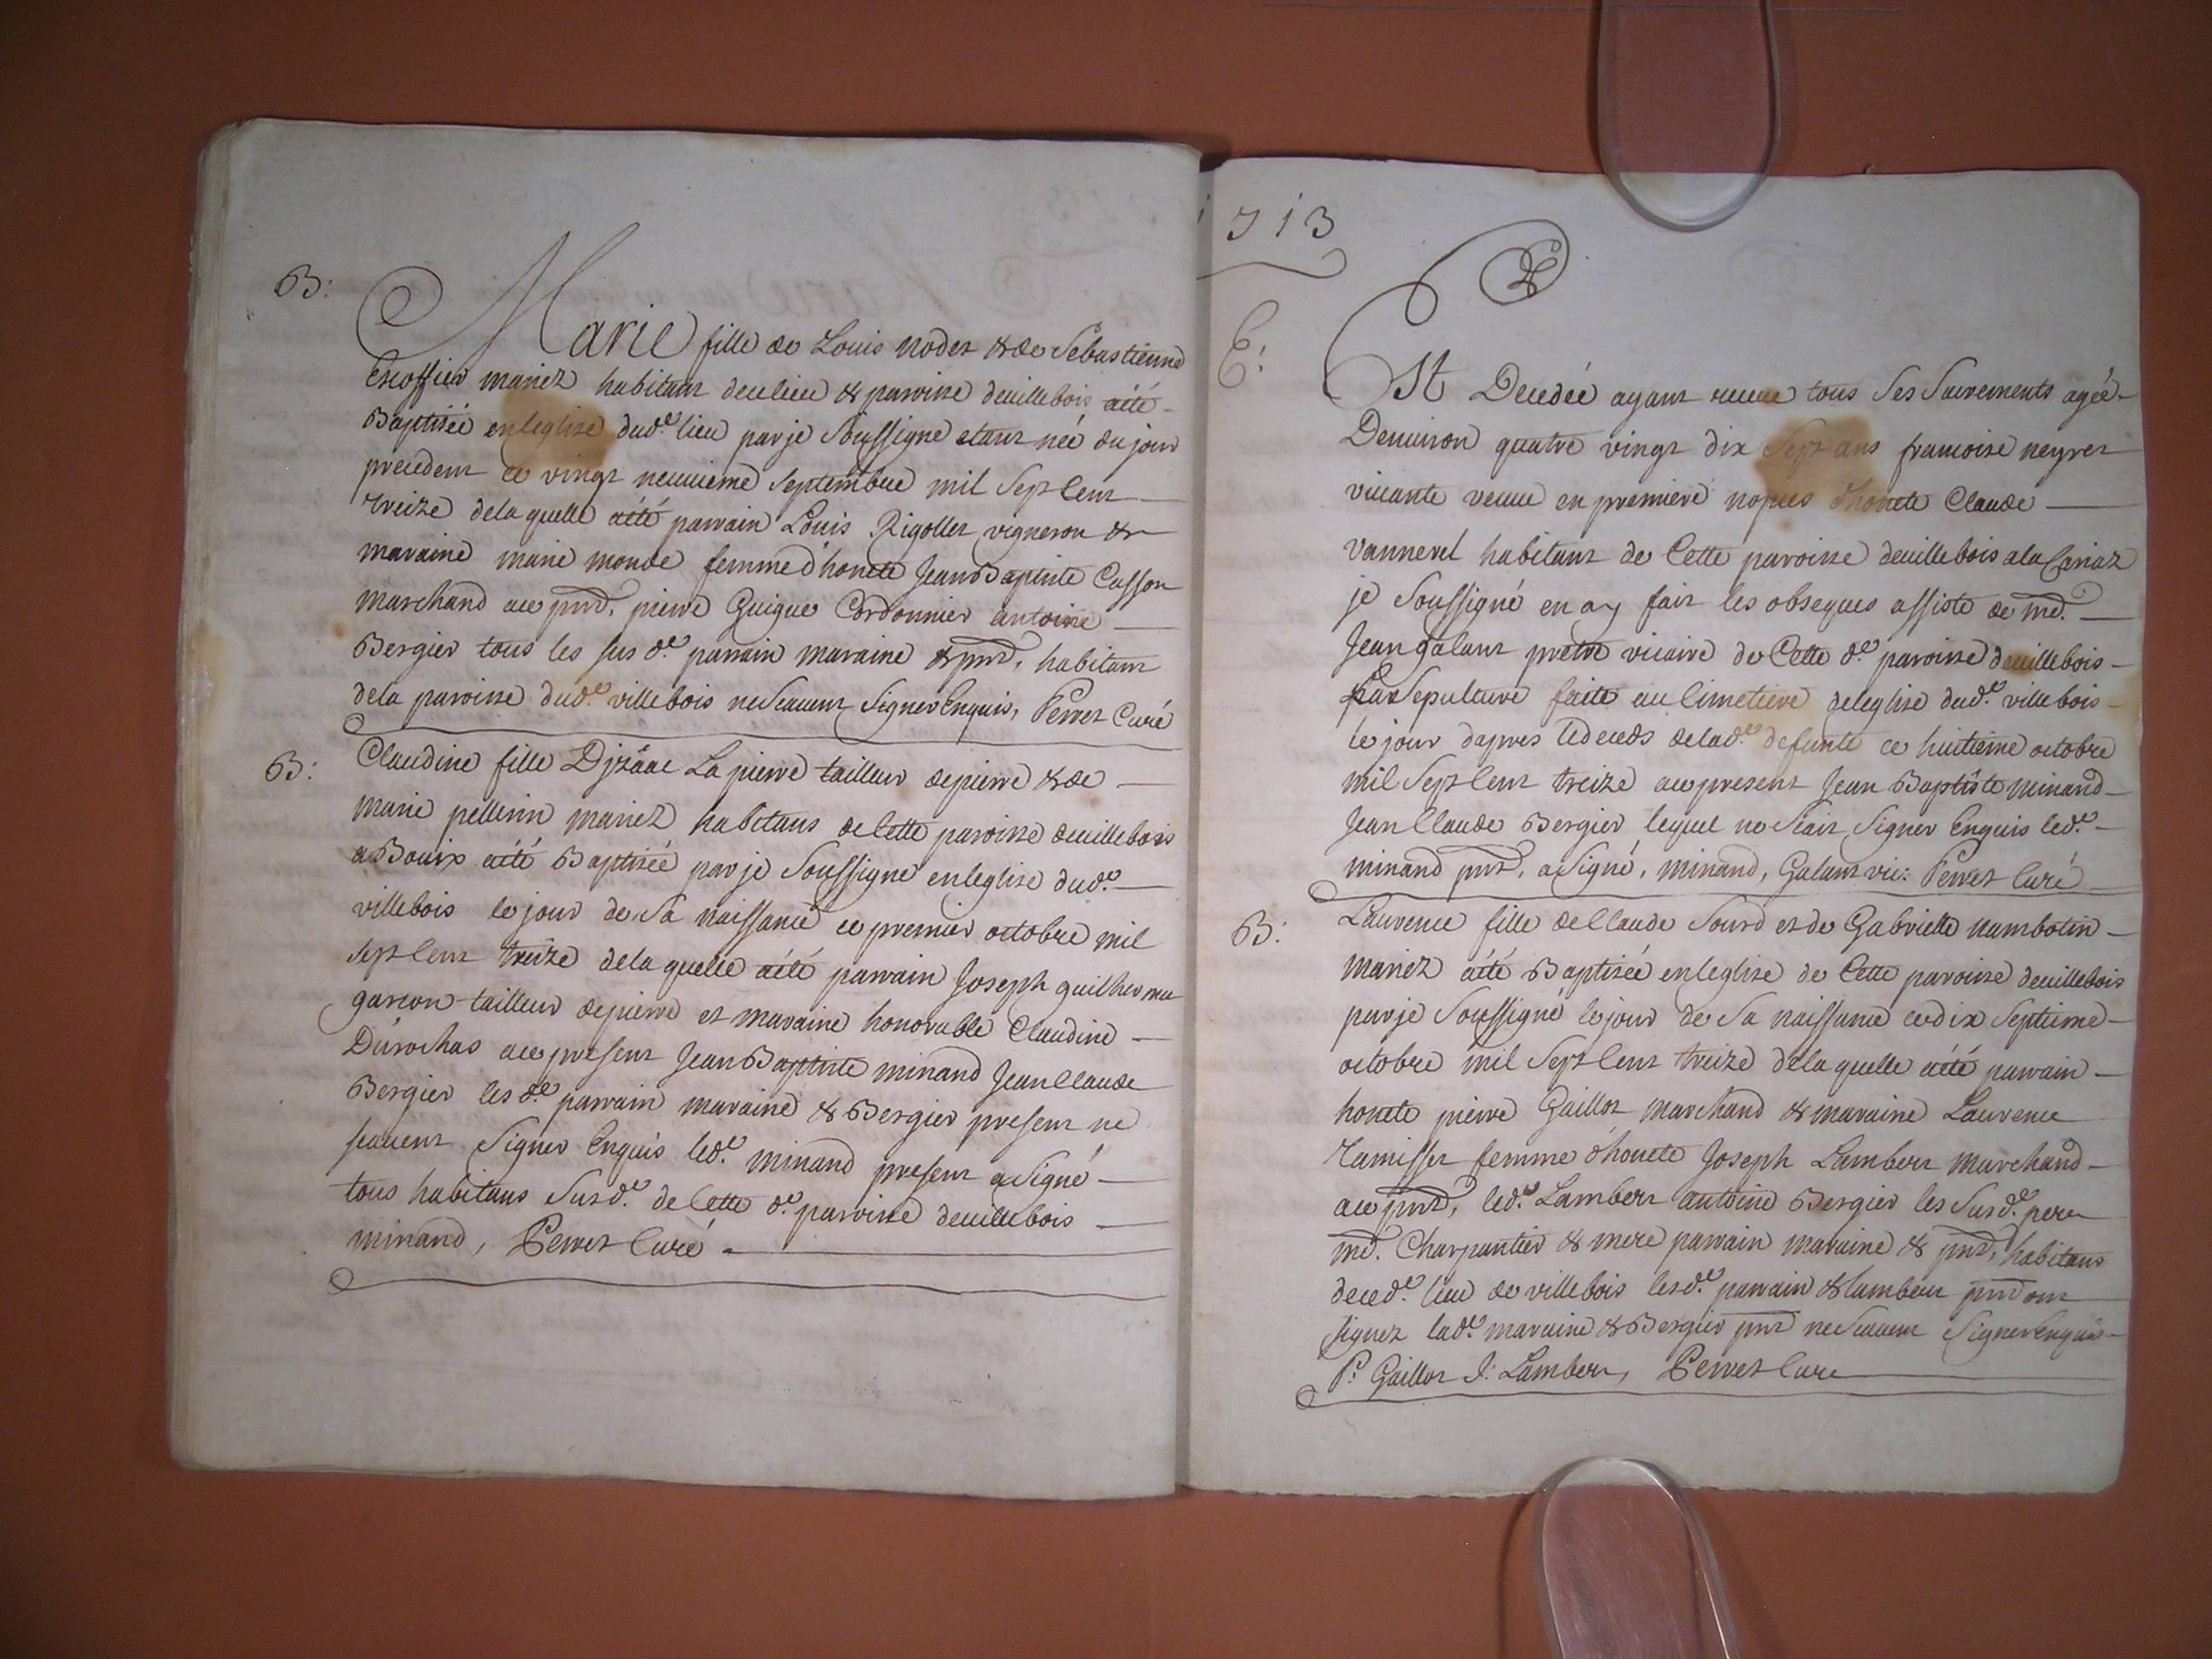 B:
Marie fille de Louis nodet & de Sebastienne
Escoffier mariez habitant deulieu & paroisse deuillebois aété
Baptisée enleglise dud.e lieu par je soussigné etant née du jour
precedent ce vingt neuuieme septembre mil sept cent
treize dela quelle aété parrain Louis Rigollet vigneron &
maraine marie monde femme d'honete Jean Baptiste Casson
marchand au pnt, pierre Guigue Cordonnier antoine
Bergier tous les sus d.e parrain maraine & pnt, habitant
dela paroisse dud.e villebois ne scauent signer Enquis, Perret Curé
B:
Claudine fille D'jzâac La pierre tailleur depierre & de
marie pellerin mariez habitans de Cette paroisse deuillebois
a Bouix aété Baptisée par je soussigné enleglise dud.e
villebois le jour de sa naissance ce premier octobre mil
sept cent treize dela quelle aété parrain Joseph guilhermu
garcon tailleur depierre et maraine honorable Claudine
Durochas au present Jean Baptiste minand Jean Claude
Bergier les d.e parrain maraine & Bergier present ne
scauent signer Enquis led.e minand present a signé
tous habitans susd.e de Cette d.e paroisse deuillebois
minand, Perret Curé
1713
E:
Est Decedée ayant receue tous ses sacrements agée
Denuiron quatre vingt dix sept ans francoise neyret
viuante veuue en premiere nopces d'honete Claude
vannerel habitant de Cette paroisse deuillebois ala Cariaz
je soussigné en ay fait les obseques assisté de m.e
Jean galant pretre vicaire de Cette d.e paroisse deuillebois
La sepulture faite au Cimetiere deleglise dud.e villebois
le jour dapres le deceds delad.e defunte ce huitieme octobre
mil sept cent treize au present Jean Baptiste minand
Jean Claude Bergier lequel ne scait signer Enquis led.e
minand pnt, a signé, minand, Galant vic: Perret Curé
B:
Laurence fille de Claude sourd et de Gabrielle nambotin
mariez aété Baptisée enleglise de Cette paroisse deuillebois
par je soussigné le jour de sa naissance ce dix septieme
octobre mil sept cent treize dela quelle aété parrain
honete pierre Gaillot marchand & maraine Laurence
ramisset femme d'honete Joseph Lambert marchand
au pnt, led.e Lambert antoine Bergier les susd.e pere
m.e Charpantier & mere parrain maraine & pnt, habitans
deced.e lieu de villebois lesd.e parrain & lambert pnt ont
signez lad.e maraine & Bergier pnt ne scauent signer Enquis
P: Gaillot J: Lambert, Perret Curé